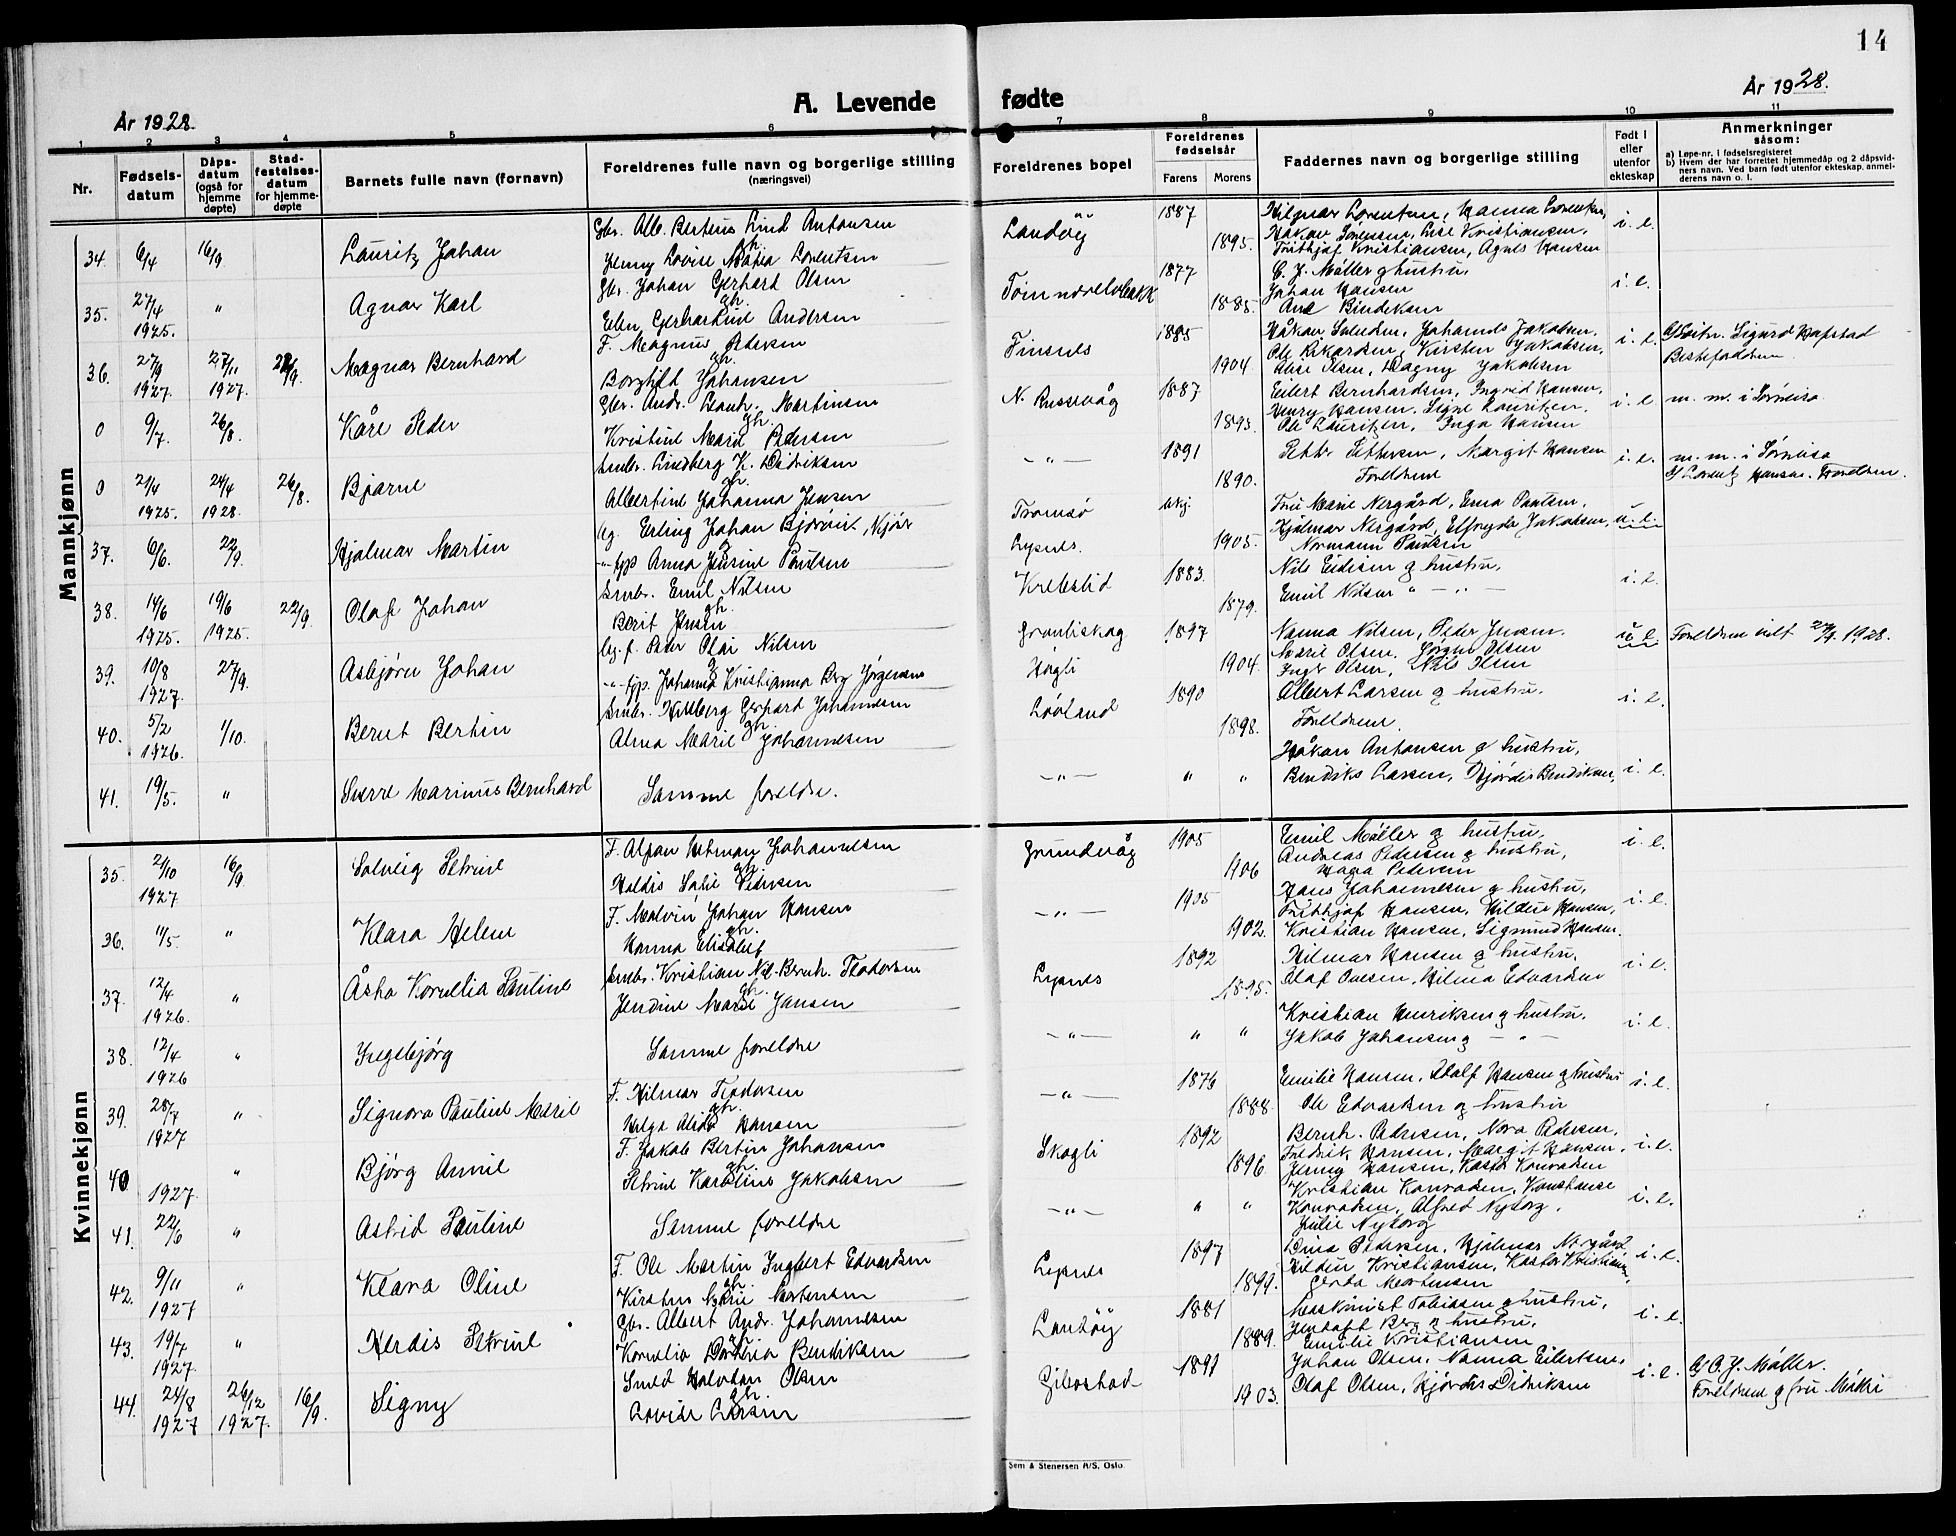 14
År 1928.
A. Levende fødte
År 1928.
1 2 3 4 5 6 7 8 9 10 11
Nr.
Fødsels-datum
Dåps-datum (også for hjemme døpte)
Stad-festelses-datum for hjemme-døpte
Barnets fulle navn (fornavn)
Foreldrenes fulle navn og borgerlige stilling (næringsvei)
Foreldrenes bopel
Foreldrenes fødselsår
Farens Morens
Faddernes navn og borgerlige stilling
Født i eller utenfor ekteskap
Anmerkninger såsom:
a) Løpe-nr. i fødselsregisteret
b) Hvem der har forrettet hjemmedåp og 2 dåpsvid-
ners navn. Ved barn født utenfor ekteskap, anmel-
derens navn o. l.
Mannkjønn
34. 6/4 16/9 Lauritz Johan
Gbr. Alb. Berteus Lind Antonsen
gh.
Jenny Lovise Maria Lorentsen
Landøy 1887 1895.
Hilmar Lorentsen, Hanna Lorentsen,
Håkon Sørensen, Lise Kristiansen,
Frithjof Kristiansen, Agnes Hansen
i. e.
35. 27/4 1925. " Agnar Karl
Gbr. Johan Gerhard Olsen
gh.
Elen Gerhardine Andersen
1877 1885.
C. J. Møller og hustru,
Johan Hansen
i. e.
36. 27/9 1927. 27/11 1927. Magnar Bernhard
F. Magnus Pedersen
gh.
Borghild Johansen
Finsnes 1885 1904
Håkon Svendsen, Johannes Jakobsen,
Ole Rikardsen, Kirsten Jakobsen,
Dagny Jakobsen
i. e.
Sigurd Hapstad
0 9/7. 26/8. Kåre Peder
Gbr. Andr. Martinsen
gh.
Kristine Marie Pedersen
N. Russevåg 1887 1893.
Eilert Bernhardsen, Ingrid Hansen,
Henry Hansen, Signe Lauritzen,
Ole Lauritzen, Inga Hansen
i. e.
m. m. i Sørreisa
0 21/4 1925. 24/4 1928. 26/8. Bjarne
Smbr. Lindberg K. Didriksen
gh.
Albertine Johanna Jensen
- " - 1891 1890.
Petter Pettersen, Margit Hansen
Foreldrene
i. e.
m. m. i Sørreisa
Lorentz Hansen. Foreldrene.
37. 6/6. 22/9. Hjalmar Martin
Ug. Erling Johan Bjørvik,
Anna Jensine Paulsen
Tromsø
Lysnes. 1905.
Fru Marie Nergård, Erna Paulsen,
Hjalmar Nergård, Elfryda Jakobsen,
Normann Paulsen
u. e.
38. 14/6 1925. 19/6 1925. 22/9. Olaf Johan
Smbr. Emil Nilsen
gh.
Berit Jensen
1883. 1879.
Nils Eidisen og hustru,
Emil Nilsen " - " -
i. e.
39. 10/8 1927. 27/9. Asbjørn Johan
Ug. f. Peder Olai Nilsen
Johanna Kristianna Berg Jørgensen
1897 1904.
Nanna Nilsen, Peder Jensen,
Marie Olsen, Jørgen Olsen
Inger Olsen, Nils Olsen
u. e.
1928.
40. 5/2 1926. 1/10. Bernt Bertin
Smbr. Hillberg Gerhard Johannesen
gh.
Alma Marie Johannesen
Løvland 1890 1898.
Albert Larsen og hustru.
Foreldrene.
i. e.
41. 19/5. " Sverre Marinus Bernhard
Samme foreldre.
- " - " "
Håkon Antonsen og hustru,
Bendiks Larsen, Hjørdis Bendiksen,
i. e.
Kvinnekjønn
35. 2/10 1927 16/9. Solveig Petrine
F. Alfon Herman Johannesen
gh.
Haldis Sofie Pedersen
Grundvåg 1905 1906
Emil Møller og hustru,
Andreas Pedersen og hustru,
Pedersen
i. e.
36. 11/5. " Klara Helene
F. Malvin Johan Hansen
gh.
Hanna Elisabet
- " - 1905 1902.
Hans Johannesen og hustru,
Frithjof Hansen, Hildur Hansen,
Kristian Hansen, Sigmund Hansen.
i. e.
37. 12/4 1926. " Åsta Kornelia Pauline
Smbr. Kristian Nil. Bernh. Teodorsen
gh.
Jendine Marie Jansen
Lysnes 1892 1895.
Hilmar Hansen og hustru,
Olaf Ovesen, Hilma Edvardsen
i. e.
38. 12/4 1926 " Ingebjørg
Samme foreldre
- " - " "
Kristian Henriksen og hustru.
Jakob Johansen og - " -
i. e.
39. 28/7 1927 " Signora Pauline Marie
F. Hilmar Teodorsen
gh.
Helga Alida Hansen
- " - 1876 1888.
Emilie Hansen, Adolf Hansen og hustru
Ole Edvardsen og hustru
i. e.
40 1927. " Bjørg Annie
F. Jakob Bertin Johansen
gh.
Petrine Karoline Jakobsen
Skogli 1892 1896.
Bernh. Pedersen, Nora Pedersen,
Fredrik Hansen, Margit Hansen,
Jenny Hansen, Kasta Konradsen
i. e.
41. 22/6 " Astrid Pauline
Samme foreldre
- " - " "
Kristian Konradsen, Konstanse
Konradsen, Alfred Nyborg,
Julie Nyborg
i. e.
42. 9/11 1927 " Klara Oline
F. Ole Martin Ingbert Edvardsen
gh.
Kirsten Marie Mortensen
Lysnes 1897 1899.
Dina Pedersen, Hjalmar Norgård
Hildur Kristiansen,
Gerda Mortensen
i. e.
43. 19/7 1927. " Herdis Petrine
Gbr. Albert Andr. Johannesen
gh.
Kornelia Dorthea Bendiksen
Landøy 1881 1889.
Maskinist Tobiassen og hustru,
Jentoft Berg og hustru,
Emilie Kristiansen
i. e.
44. 24/8 1927 26/12 1927. 16/9. Signy
Smed Halvdan Olsen
gh.
Lovise Larsen
Gibostad 1891 1903.
Johan Olsen, Nanna Eilertsen,
Olaf Olsen, Hjørdis Didriksen
i. e.
Møller.
Foreldrene og fru Møller
Sem & Stenersen A/S, Oslo.